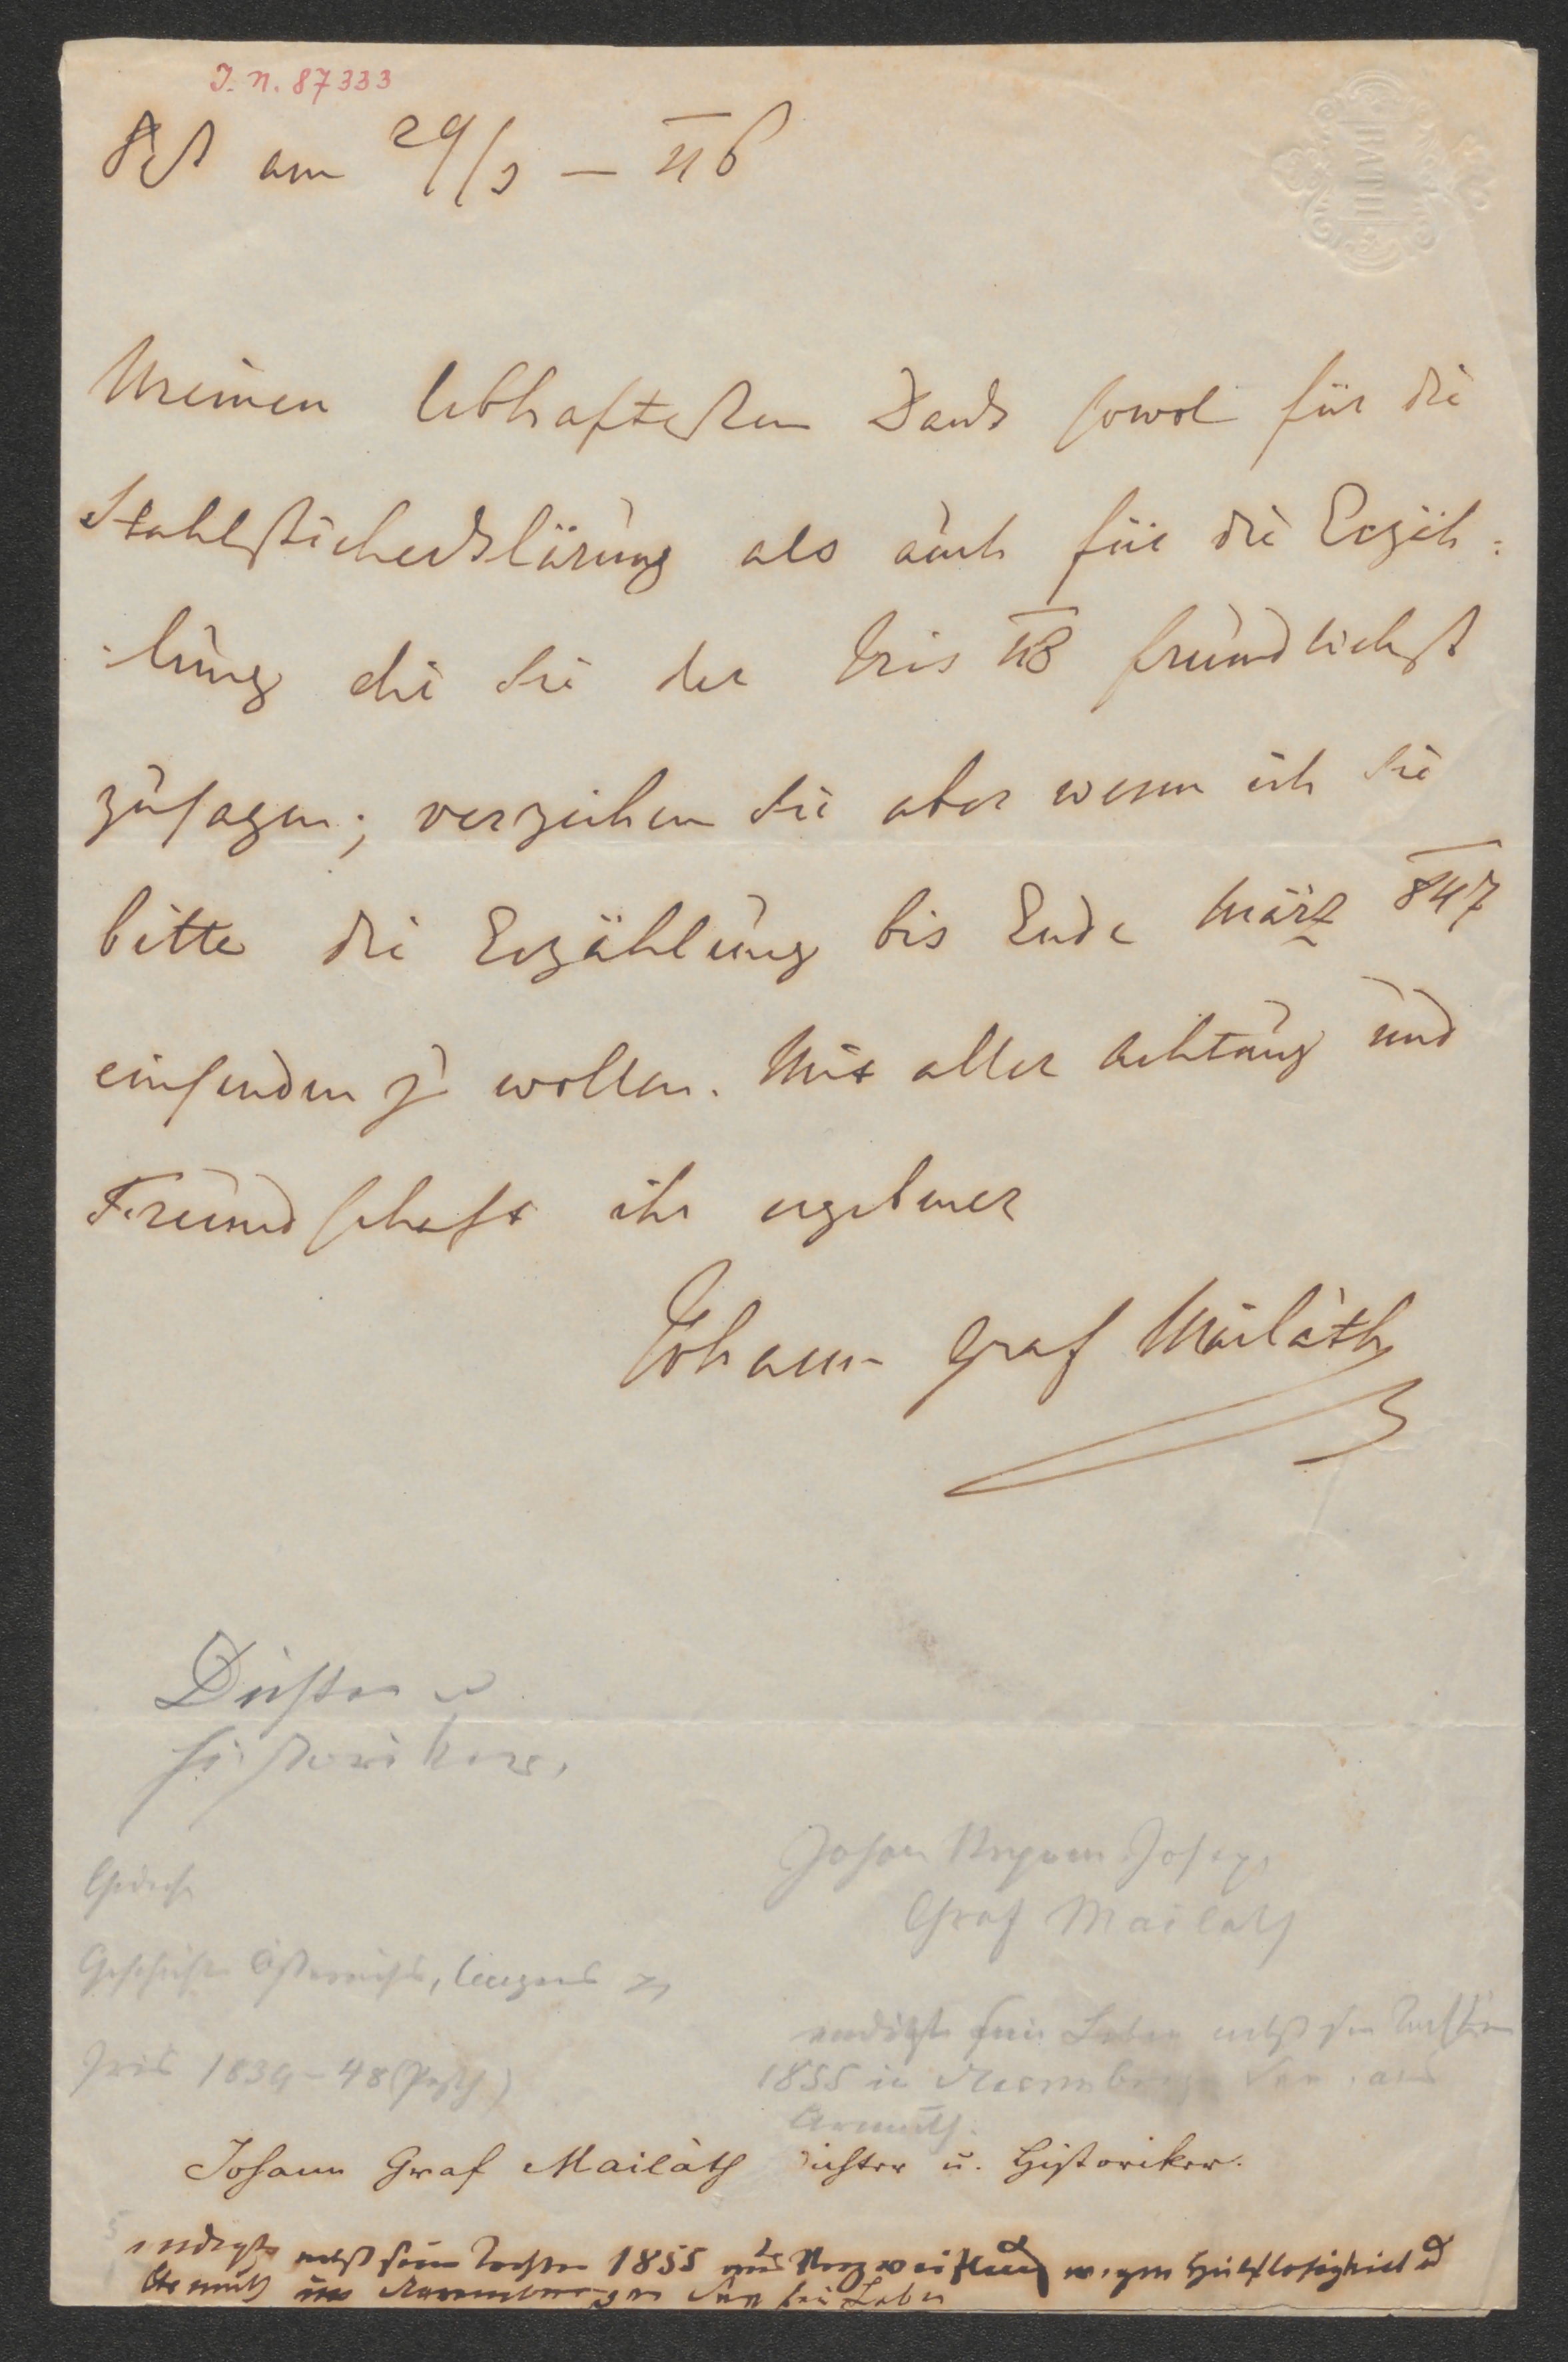 J. N. 87333
Pest am 29/9 – 46
Meinen lebhaftesten Dank sowol für die
Stahlsticherklärung als auch für die Erzäh:
:lung die Sie der Iris 48 freundlichst
zusagen; verzeihen Sie aber wenn ich Sie
bitte die Erzählung bis Ende März 847
einsenden zu wollen. Mit aller Achtung und
Freundschaft ihr ergebner
Johann Graf Mailáth
Dichter u
Historiker,
Johan Nepom Josep
Graf Mailath
Gedichte
Geschichte Österreichs, Ungarns
endigte sein Leben nebst sein Tochter
Iris 1839–48 (Pesth)
1855 in Starnberger See, aus
Armuth.
Johann Graf Mailàth Dichter u. Historiker.
endigte nebst seiner Tochter 1855 aus Verzweiflung wegen Hülflosigkeit u
Armuth im Starnberger See sein Leben